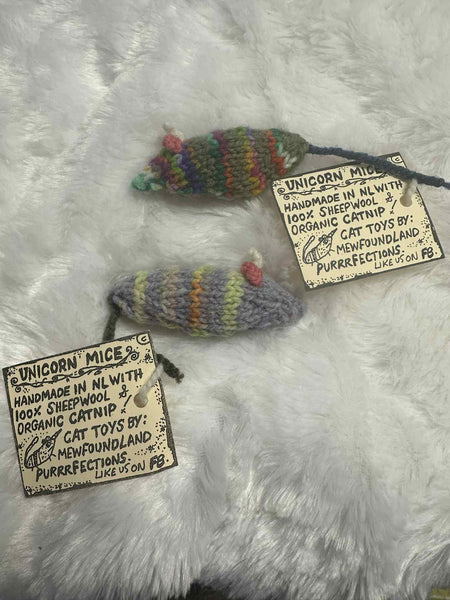 UNICORN MICE
HANDMADE IN NL WITH
100% SHEEPWOOL &
ORGANIC CATNIP,
CAT TOYS BY:
MEWFOUNDLAND
PURRRFECTIONS.
LIKE US ON FB.
UNICORN MICE
HANDMADE IN NL WITH
100% SHEEPWOOL &
ORGANIC CATNIP,
CAT TOYS BY:
MEWFOUNDLAND
PURRRFECTIONS.
LIKE US ON FB.